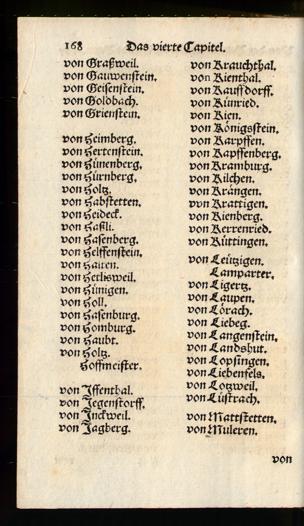 168
Das vierte Capitel.
von Graßweil.
von Gauwenstein.
von Geisenstein.
von Goldbach.
von Grienstein.
von Heimberg.
von Hertenstein.
von Hünenberg.
von Hürnberg.
von Holtz.
von Habstetten.
von Heideck.
von Haßli.
von Hasenberg.
von Helffenstein.
von Halten.
von Hetlisweil.
von Hünigen.
von Holl.
von Hasenburg.
von Homburg.
von Haubt.
von Holtz.
Hoffmeister.
von Iffenthal.
von Jegenstorff.
von Inckweil.
von Jagberg.
von Krauchthal.
von Kienthal.
von Kauffdorff.
von Künried.
von Kien.
von Königsstein.
von Karpffen.
von Kapffenberg.
von Kramburg.
von Kilchen.
von Krängen.
von Krattigen.
von Kienberg.
von Kerrenried.
von Küttingen.
von Leützigen.
Lamparter.
von Ligertz.
von Laupen.
von Lörach.
von Liebeg.
von Langenstein.
von Landshut.
von Lopsingen.
von Liebenfels.
von Lotzweil.
von Lüstrach.
von Mattstetten.
von Muleren.
von